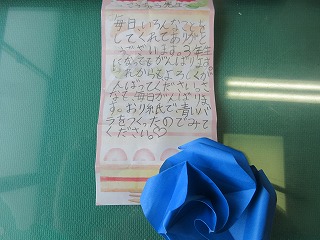 毎日、いろんなことを
してくれてありがとう
ございます。3年生
になってもがんばります。
これからもよろしく
がんばってくださいっ。
も毎日がんばります。
おり紙で青いバ
ラをつくったのでみて
ください。♡